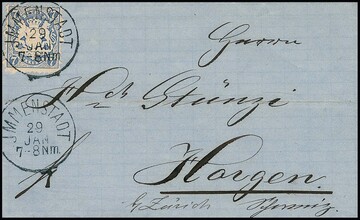 IMMENSTADT
29
JAN
7-8 Nm.
Herrn
Hch Stünzi
IMMENSTADT
29
JAN
7-8 Nm.
Horgen.
b/ Zürich Schweiz.